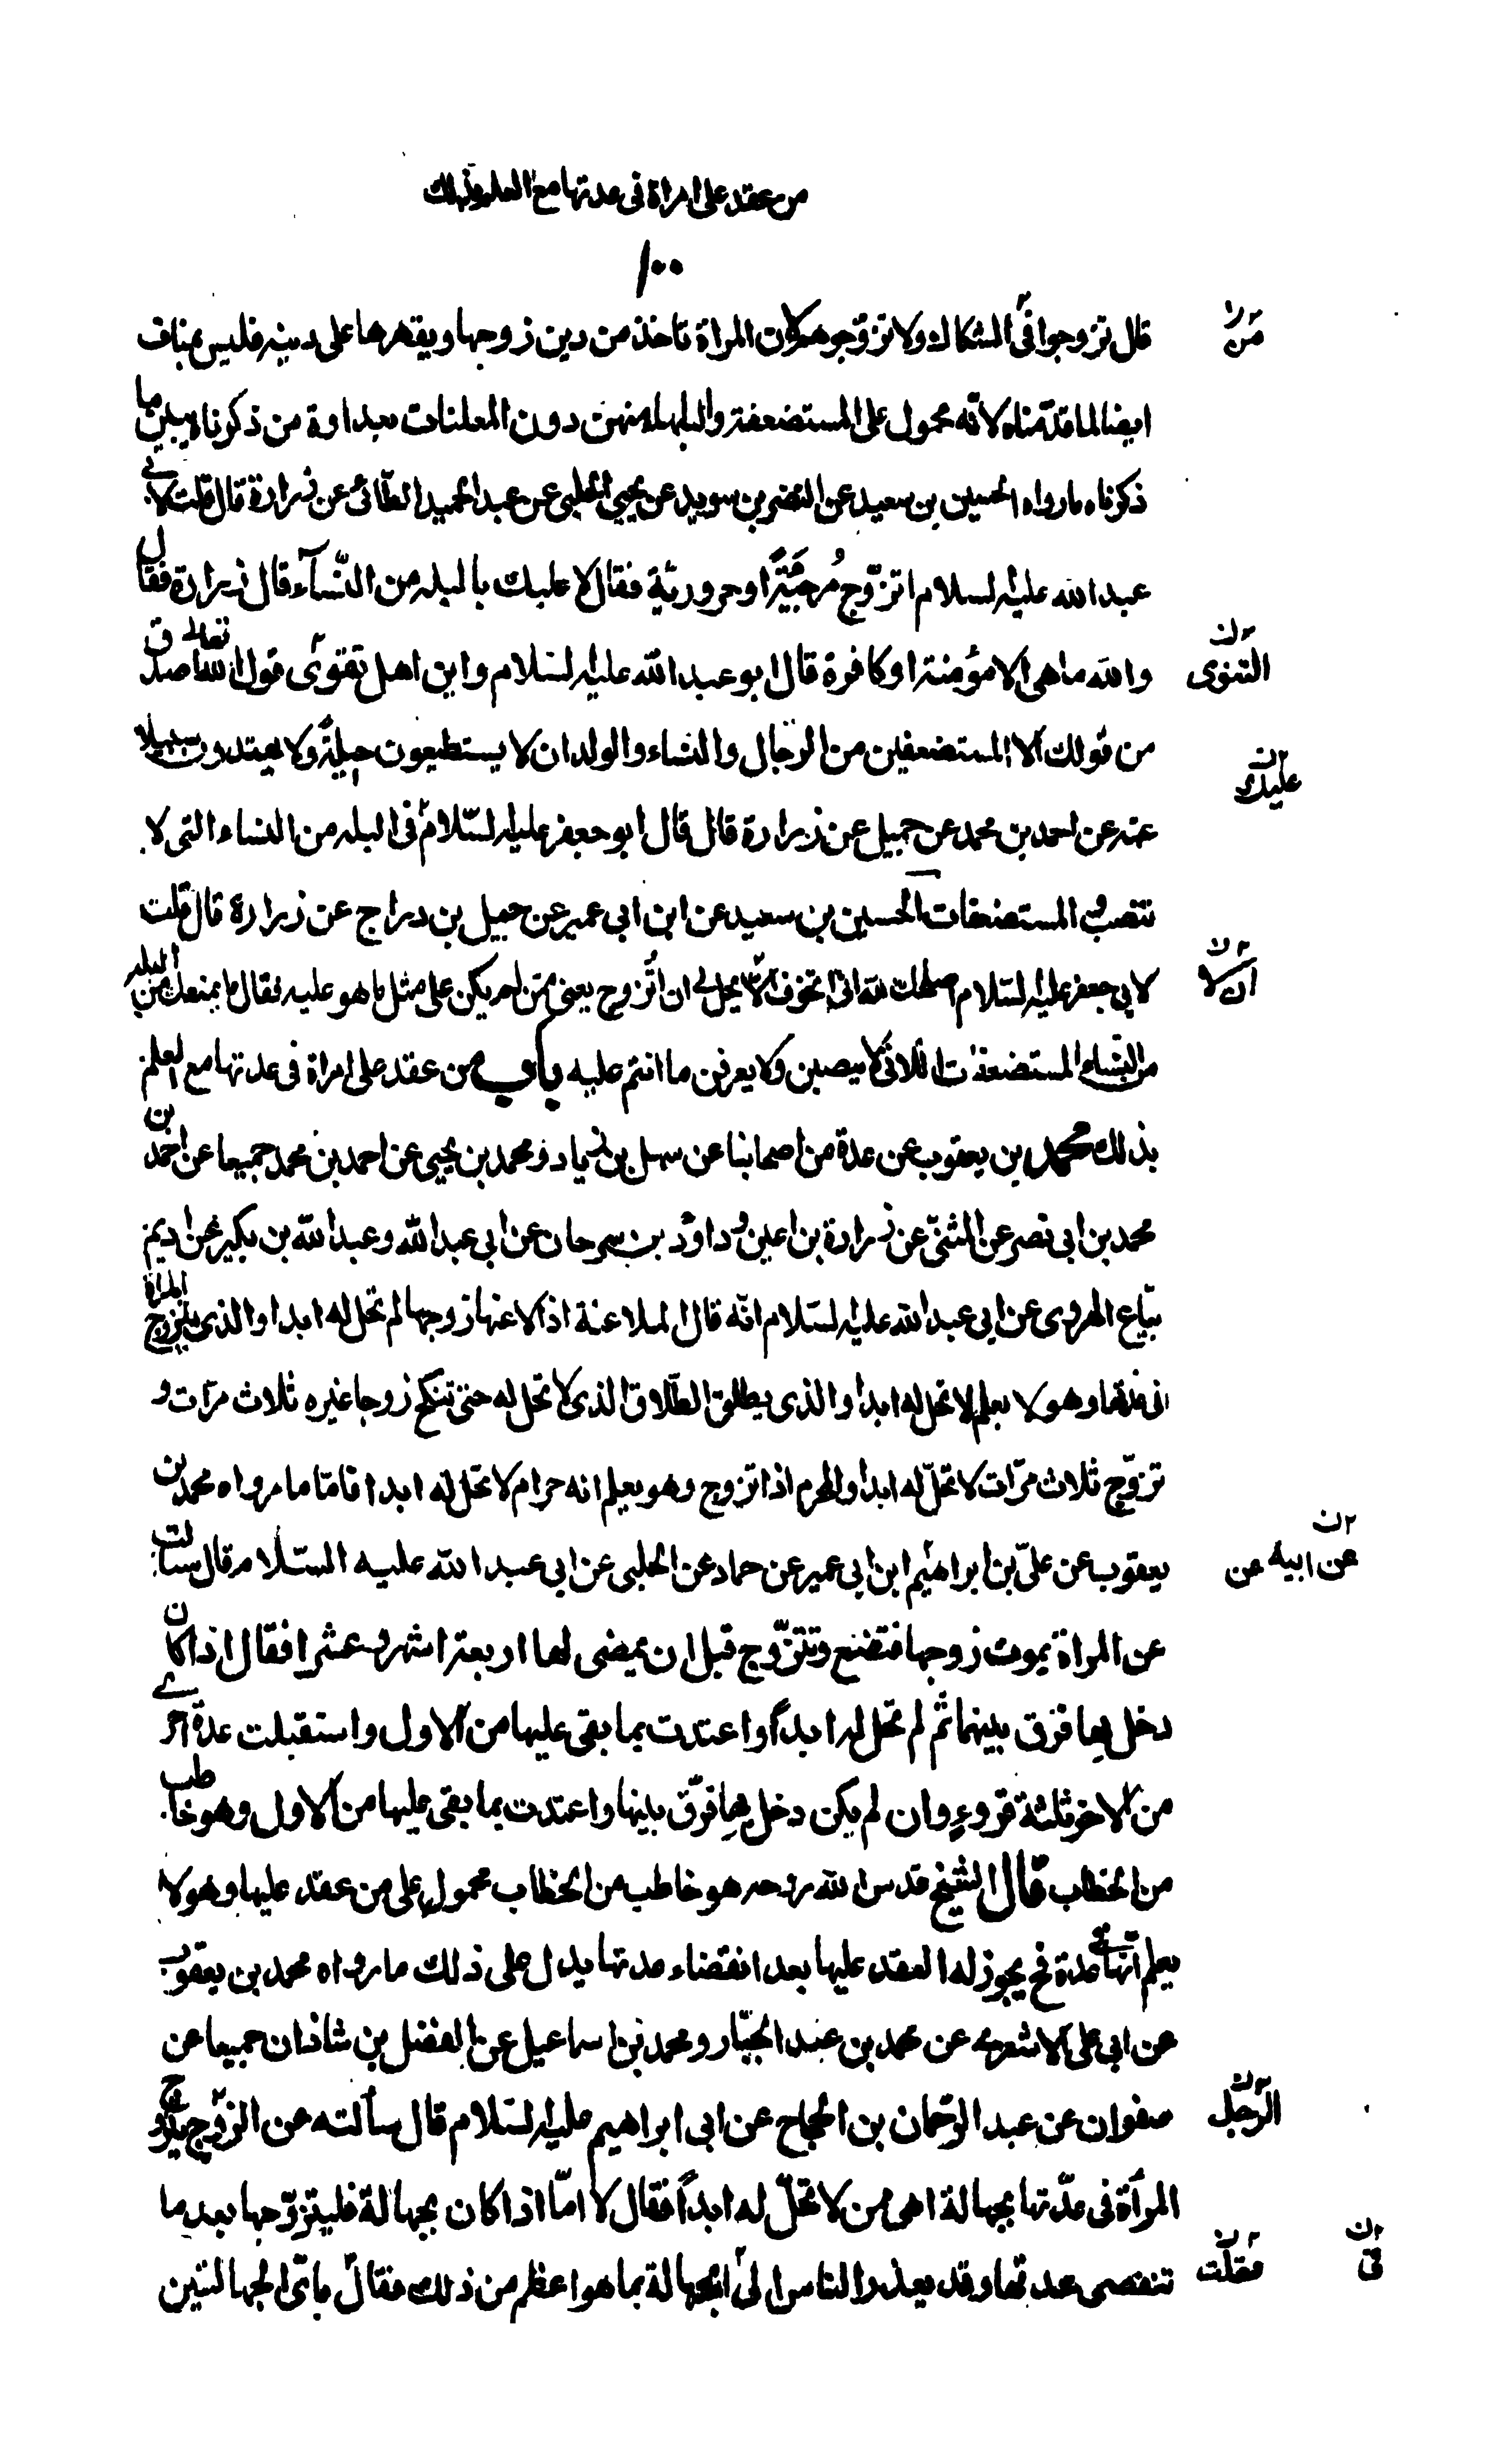 من عقد على امراة فى عدتها مع العلم بذلك
١٠٠
قال تزوجوا فى الشكاك ولا تزوّجوهم لان المراة تاخذ من دين زوجها ويقهرها على دينه فليس بمناف
من
ايضا لما قدّمناه لانّه محمول على المستضعفة والبلهاء منهن دون المعلنات بعداوة من ذكرناه يبين ما
ذكرناه ما رواه الحسين بن سعيد عن النضر بن سويد عن يحيى الحلبى عن عبد الحميد الطّائى عن زرارة قال قلت لابى
عبد الله عليه السلام اتزوّج مُرجَئةً او حرورية فقال لا عليك بالبله من النّسآء قال زرارة فقال
والله ما هى الا مؤمنة او كافرة قال ابو عبد الله عليه السّلام واين اهل تقوى قول الله تعالى اصدق
التنوى
من قولك الا المستضعفين من الرّجال والنساء والولدان لا يستطيعون حيلةً ولا يهتدون سبيلا
عليك
عنه عن احمد بن محمد عن جميل عن زرارة قال قال ابو جعفر عليه السّلام فى البله من النساء التى لا
تنصب والمستضعفات الحسين بن سعيد عن ابن ابى عمير عن جميل بن دراج عن زرارة قال قلت
لابى جعفر عليه السّلام اصلحك الله انى اتخوف الّا يحل لى ان اتزوج يعنى ممّن لم يكن على مثل ما هو عليه فقال ما يمنعك من البله
ان لا
من النساء المستضعفات اللاتى لا ينصبن ولا يعرفن ما انتم عليه باب من عقد على امراة فى عدتها مع العلم
بذلك محمد بن يعقوب عن عدة من اصحابنا عن سهل بن زياد ومحمد بن يحيى عن احمد بن محمد جميعا عن احمد بن
محمد بن ابى نصر عن المثنّى عن زرارة بن اعين وداوُد بن سرحان عن ابى عبد الله وعبد الله بن بكير عن اديم
بيّاع الهروى عن ابى عبد الله عليه السّلام انّه قال الملاعنة اذا لاعنها زوجها لم تحل له ابدا والذى يتزوج المراة
فى عدتها وهو لا يعلم لا تحل له ابدا والذى يطلق الطّلاق الذى لا تحل له حتى تنكح زوجا غيره ثلاث مرّات و
تزوّج ثلاث مرّات لا تحلّ له ابدا والمحرم اذا تزوج وهو يعلم انه حرام لا تحل له ابدا فامّا ما رواه محمد بن
يعقوب عن علىّ بن ابراهيم ابن ابى عمير عن حماد عن الحلبى عن ابى عبد الله عليه السّلام قال سالت
عن ابيه عن
عن المراة يموت زوجها فتضع وتتزّوج قبل ان يمضى لها اربعة اشهر وعشرا فقال اذا كان
دخل بها فرق بينهما ثم لم تحل له ابداً واعتدت بما بقى عليها من الاول واستقبلت عدة اخرى
من الاخر ثلثة قروءٍ وان لم يكن دخل بها فرّق بينها واعتدت بما بقى عليها من الاول وهو خاطب
من الخطاب قال الشيخ قدس الله روحه هو خاطب من الخطاب محمول على من عقد عليها وهو لا
يعلم انّها فى عدة فح يجوز له العقد عليها بعد انقضاء عدتها يدل على ذلك ما رواه محمد بن يعقوب
عن ابى على الاشعرى عن محمد بن عبد الجبّار ومحمد بن اسماعيل عن الفضل بن شاذان جميعا عن
صفوان عن عبد الرّحمان بن الحجاج عن ابى ابراهيم عليه السّلام قال سألته عن الزّوج يتزوج
الرّجل
المرأة فى عدّتها بجهالة اهى ممن لا تحلّ له ابداً فقال لا امّا اذا كان بجهالة فليتزوّجها بعد ما
تنقضى عدتها وقد يعذر الناس الى الجهالة بما هو اعظم من ذلك فقال باىّ الجهالتين
فقلت
فى